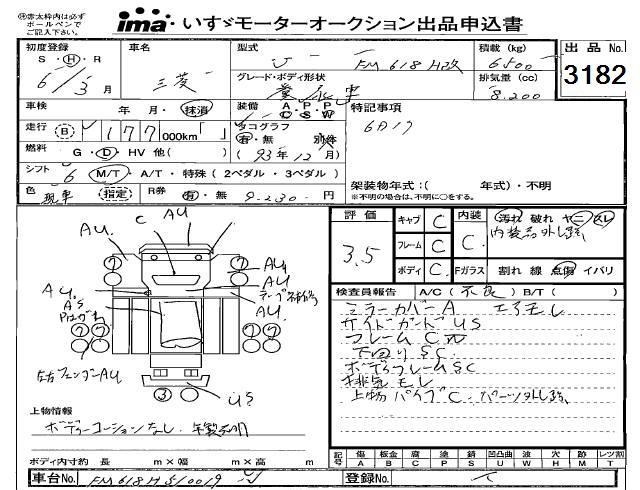 ㊟赤太枠内は必ず
ボールペンで
ご記入下さい。
ima いすゞモーターオークション出品申込書
初度登録 車名 型式 積載 (kg) 出品 No.
S・H・R 三菱 U- FM618H改 6500 3182
6/3月 グレード・ボディ形状 排気量 (cc)
車 8.200
車検 年・月・抹消 装備 A・P・P C・S・W 特記事項
走行 B 177 000km「 」 タコグラフ 有・無 別体 6D17
燃料 G・D・HV 他( ) (93年12月)
シフト 6 M/T・A/T・特殊 (2ペダル・3ペダル)
架装物年式:( 年式)・不明
色 現車 指定 R券 有・無 9.230- 円
※不明の場合は、不明に○をする。
評価 3.5
キャブ C 内装 C 汚れ 破れ ヤニ スレ
フレーム C 内装品外し跡
ボディ C Fガラス 割れ 線 点傷 イバリ
AU C AU
AU
AU
AU
AS
AU
左右フェンダーAU
US
検査員報告 A/C( 不良 ) B/T( )
ミラーカバーA エアモレ
サイドガードUS
フレームC
下回りSC
ボディフレームSC
排気モレ
上物パイプC.
上物情報
ボディーコーションなし.
ボディ内寸約 長 m×幅 m×高 m
記号 傷A 板金B 腐C 塗P 錆S 凹凸曲U 波W 穴H 跡M レンズ割T
車台No. FM618H-510019 登録No.